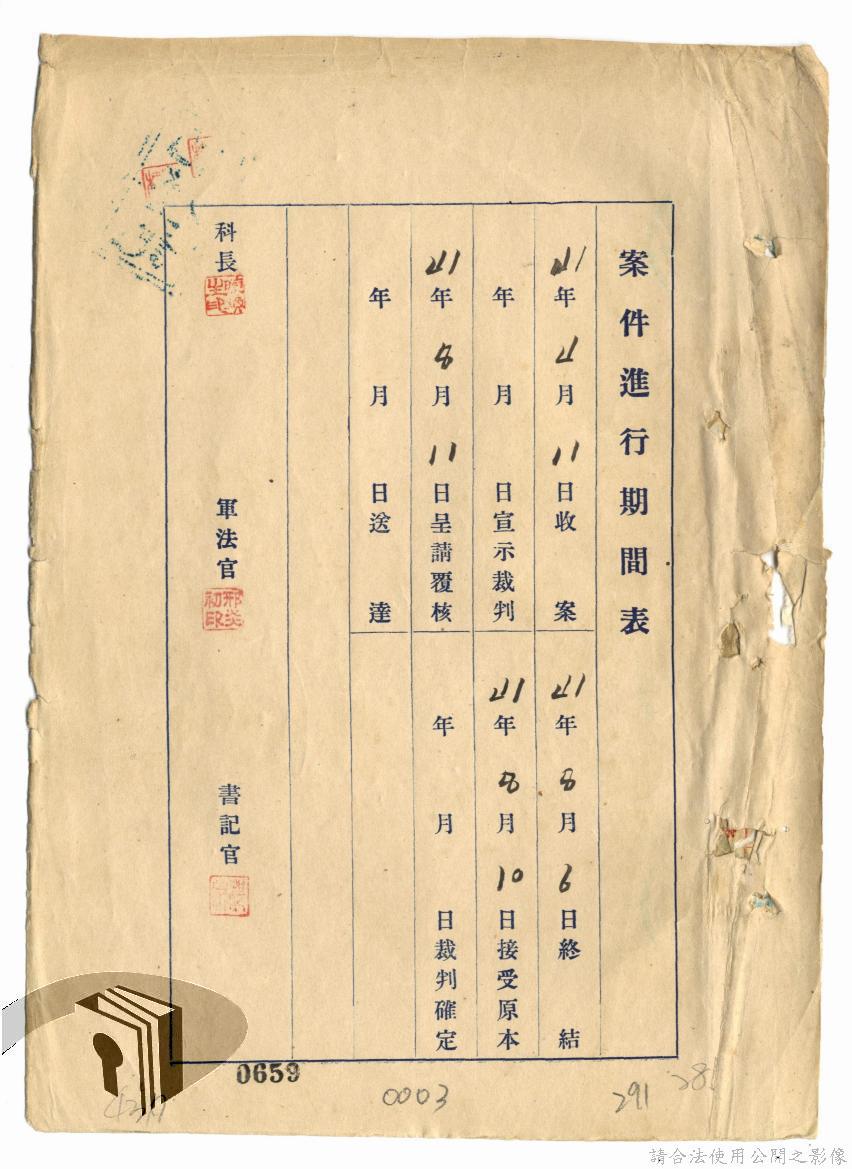 案件進行期間表
41年4月11日收案
41年8月6日終結
年月日宣示裁判
41年8月10日接受原本
41年8月11日呈請覆核
年月日裁判確定
年月日送達
科長
軍法官
邢炎初印
書記官
0659
0003
291
請合法使用公開之影像